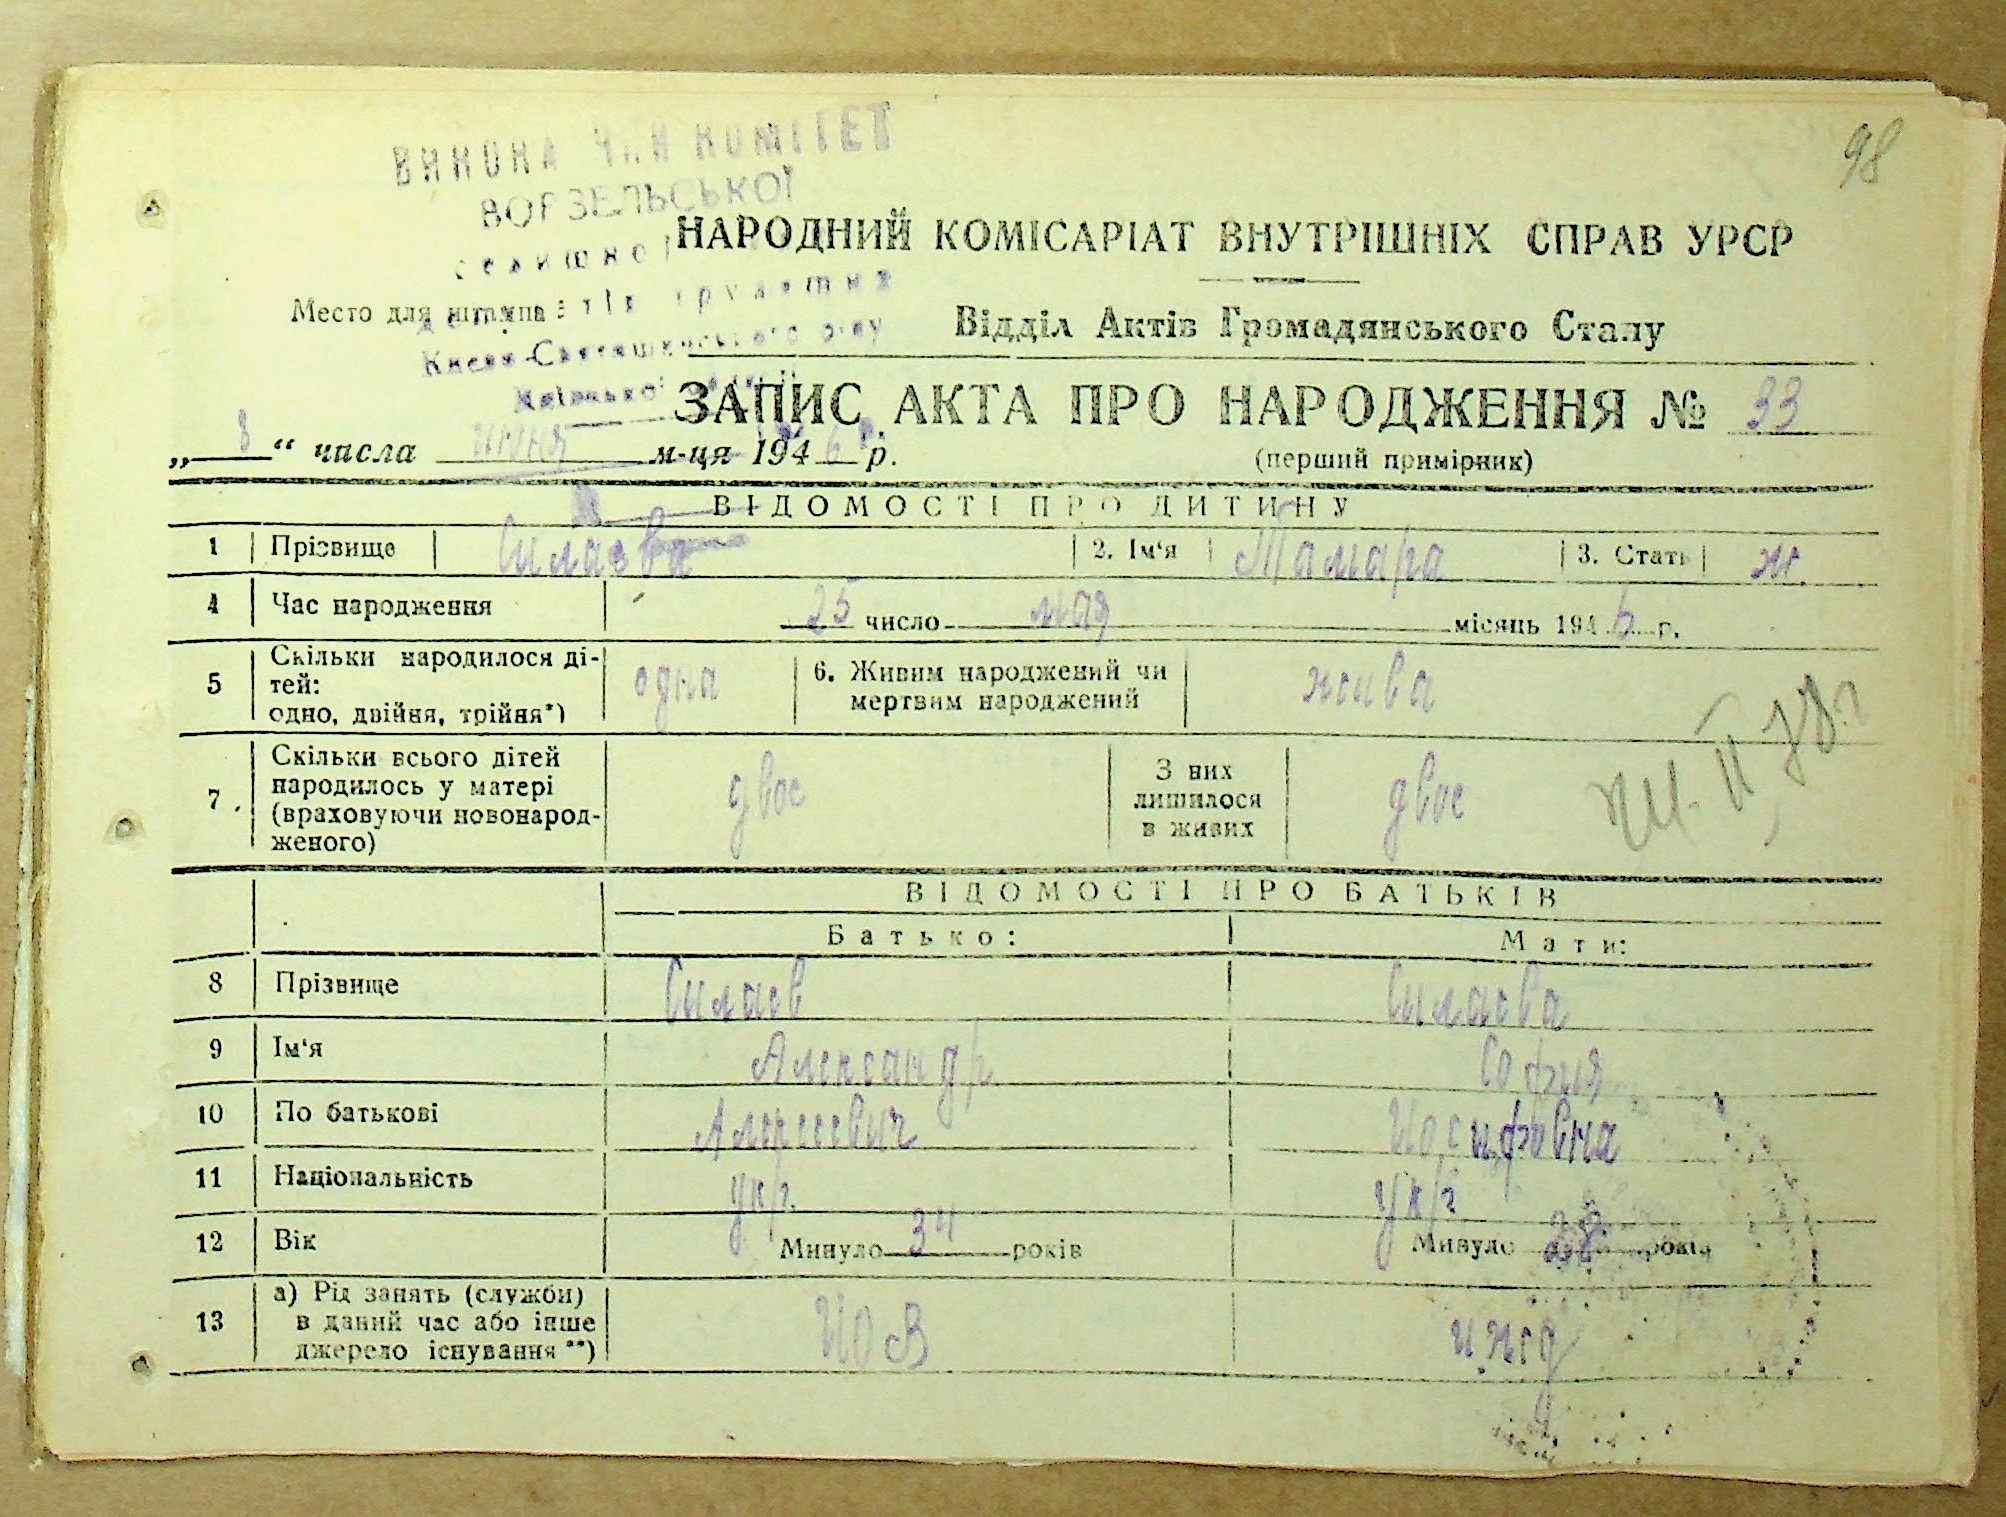 98
ВИКОНАЧИЙ КОМІТЕТ
ВОРЗЕЛЬСЬКОЇ
селишної
НАРОДНИЙ КОМІСАРІАТ ВНУТРІШНІХ СПРАВ УРСР
Место для штампа
Відділ Актів Громадянського Стану
Києво-Святошинського р-ну
Київської
ЗАПИС АКТА ПРО НАРОДЖЕННЯ № 33
„ 8 “ числа июня м-ця 1946 р.
(перший примірник)
ВІДОМОСТІ ПРО ДИТИНУ
1 Прізвище Силаева 2. Ім‘я Тамара 3. Стать ж.
4 Час народження 25 число мая місяць 1946 р.
5 Скільки народилося ді-
тей:
одно, двійня, трійня*) одна 6. Живим народжений чи
мертвим народжений жива
7 Скільки всього дітей
народилось у матері
(враховуючи новонарод-
женого) двое З них
лишилося
в живих двое
ВІДОМОСТІ ПРО БАТЬКІВ
Батько: Мати:
8 Прізвище Силаев Силаева
9 Ім‘я Александр София
10 По батькові Алексеевич Иосифовна
11 Національність укр. укр.
12 Вік Минуло 34 років Минуло років
13 а) Рід занять (служби)
в даний час або інше
джерело існування **) ИОВ ижд